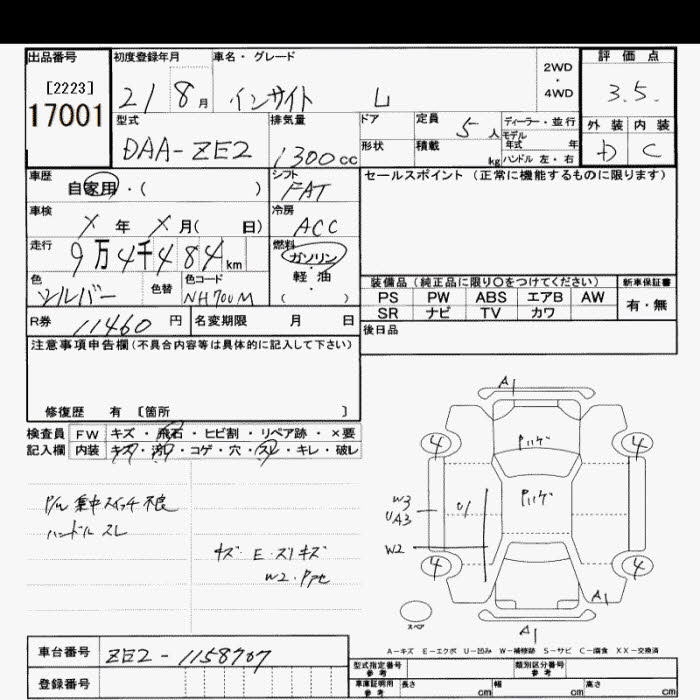 出品番号 初度登録年月 車名・グレード 2WD・4WD 評価点
[2223]
17001
21 8月 インサイト L 3.5.
型式 排気量 ドア 定員 5人 ディーラー・並行 外装 内装
モデル年式 年
DAA-ZE2 1300cc 形状 積載 kg ハンドル 左・右 D C
車歴 シフト セールスポイント (正常に機能するものに限ります)
自家用・( ) FAT
車検 冷房
X年 X月( 日) ACC
走行 燃料
9万4千484km ガソリン
軽・油
( )
色 色替 色コード 装備品(純正品に限り〇をつけてください) 新車保証書
シルバー NH700M PS PW ABS エアB AW 有・無
SR ナビ TV カワ
R券 11460円 名変期限 月 日 後日品
注意事項申告欄(不具合内容等は具体的に記入して下さい)
修復歴 有 [箇所 ]
検査員 FW キズ・飛石・ヒビ割・リペア跡・×要
記入欄 内装 キズ・汚れ・コゲ・穴・スレ・キレ・破レ
P/W 集中スイッチ不良
ハンドル スレ
キズ E・スリキズ
W2・P
A1
4 4
W3
UA3
U1
W2
4 4
A1
スペア
A1
A-キズ E-エクボ U-凹み W-補修跡 S-サビ C-腐食 XX-交換済
車台番号 ZE2-1158707
型式指定番号 参考 類別区分番号 参考
登録番号 車庫証明用 参考 長さ cm 幅 cm 高さ cm